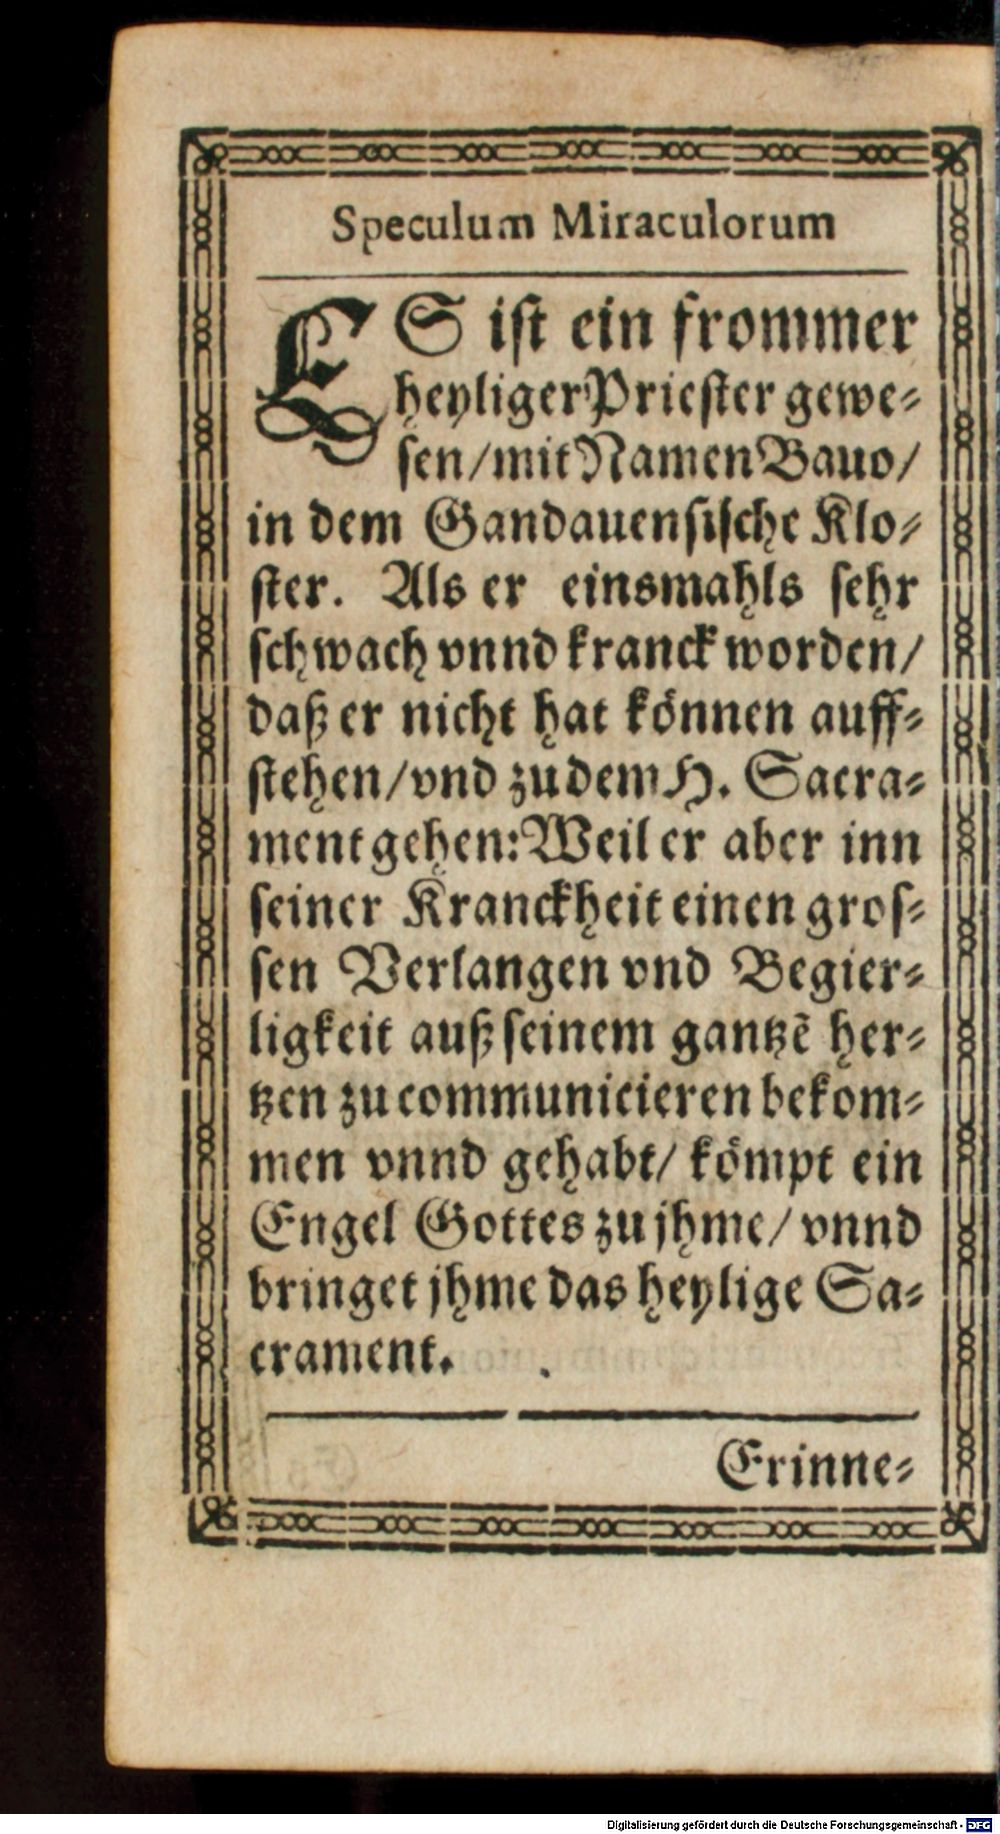 Speculum Miraculorum
ES ist ein frommer
heyliger Priester gewe-
sen/mit Namen Bauo/
in dem Gandauensische Klo-
ster. Als er einsmahls sehr
schwach vnnd kranck worden/
daß er nicht hat können auff-
stehen/vnd zu dem H. Sacra-
ment gehen: Weil er aber inn
seiner Kranckheit einen gros-
sen Verlangen vnd Begier-
ligkeit auß seinem gantzē her-
tzen zu communicieren bekom-
men vnnd gehabt/ kömpt ein
Engel Gottes zu jhme/ vnnd
bringet jhme das heylige Sa-
crament.
Erinne-
Digitalisierung gefördert durch die Deutsche Forschungsgemeinschaft - DFG